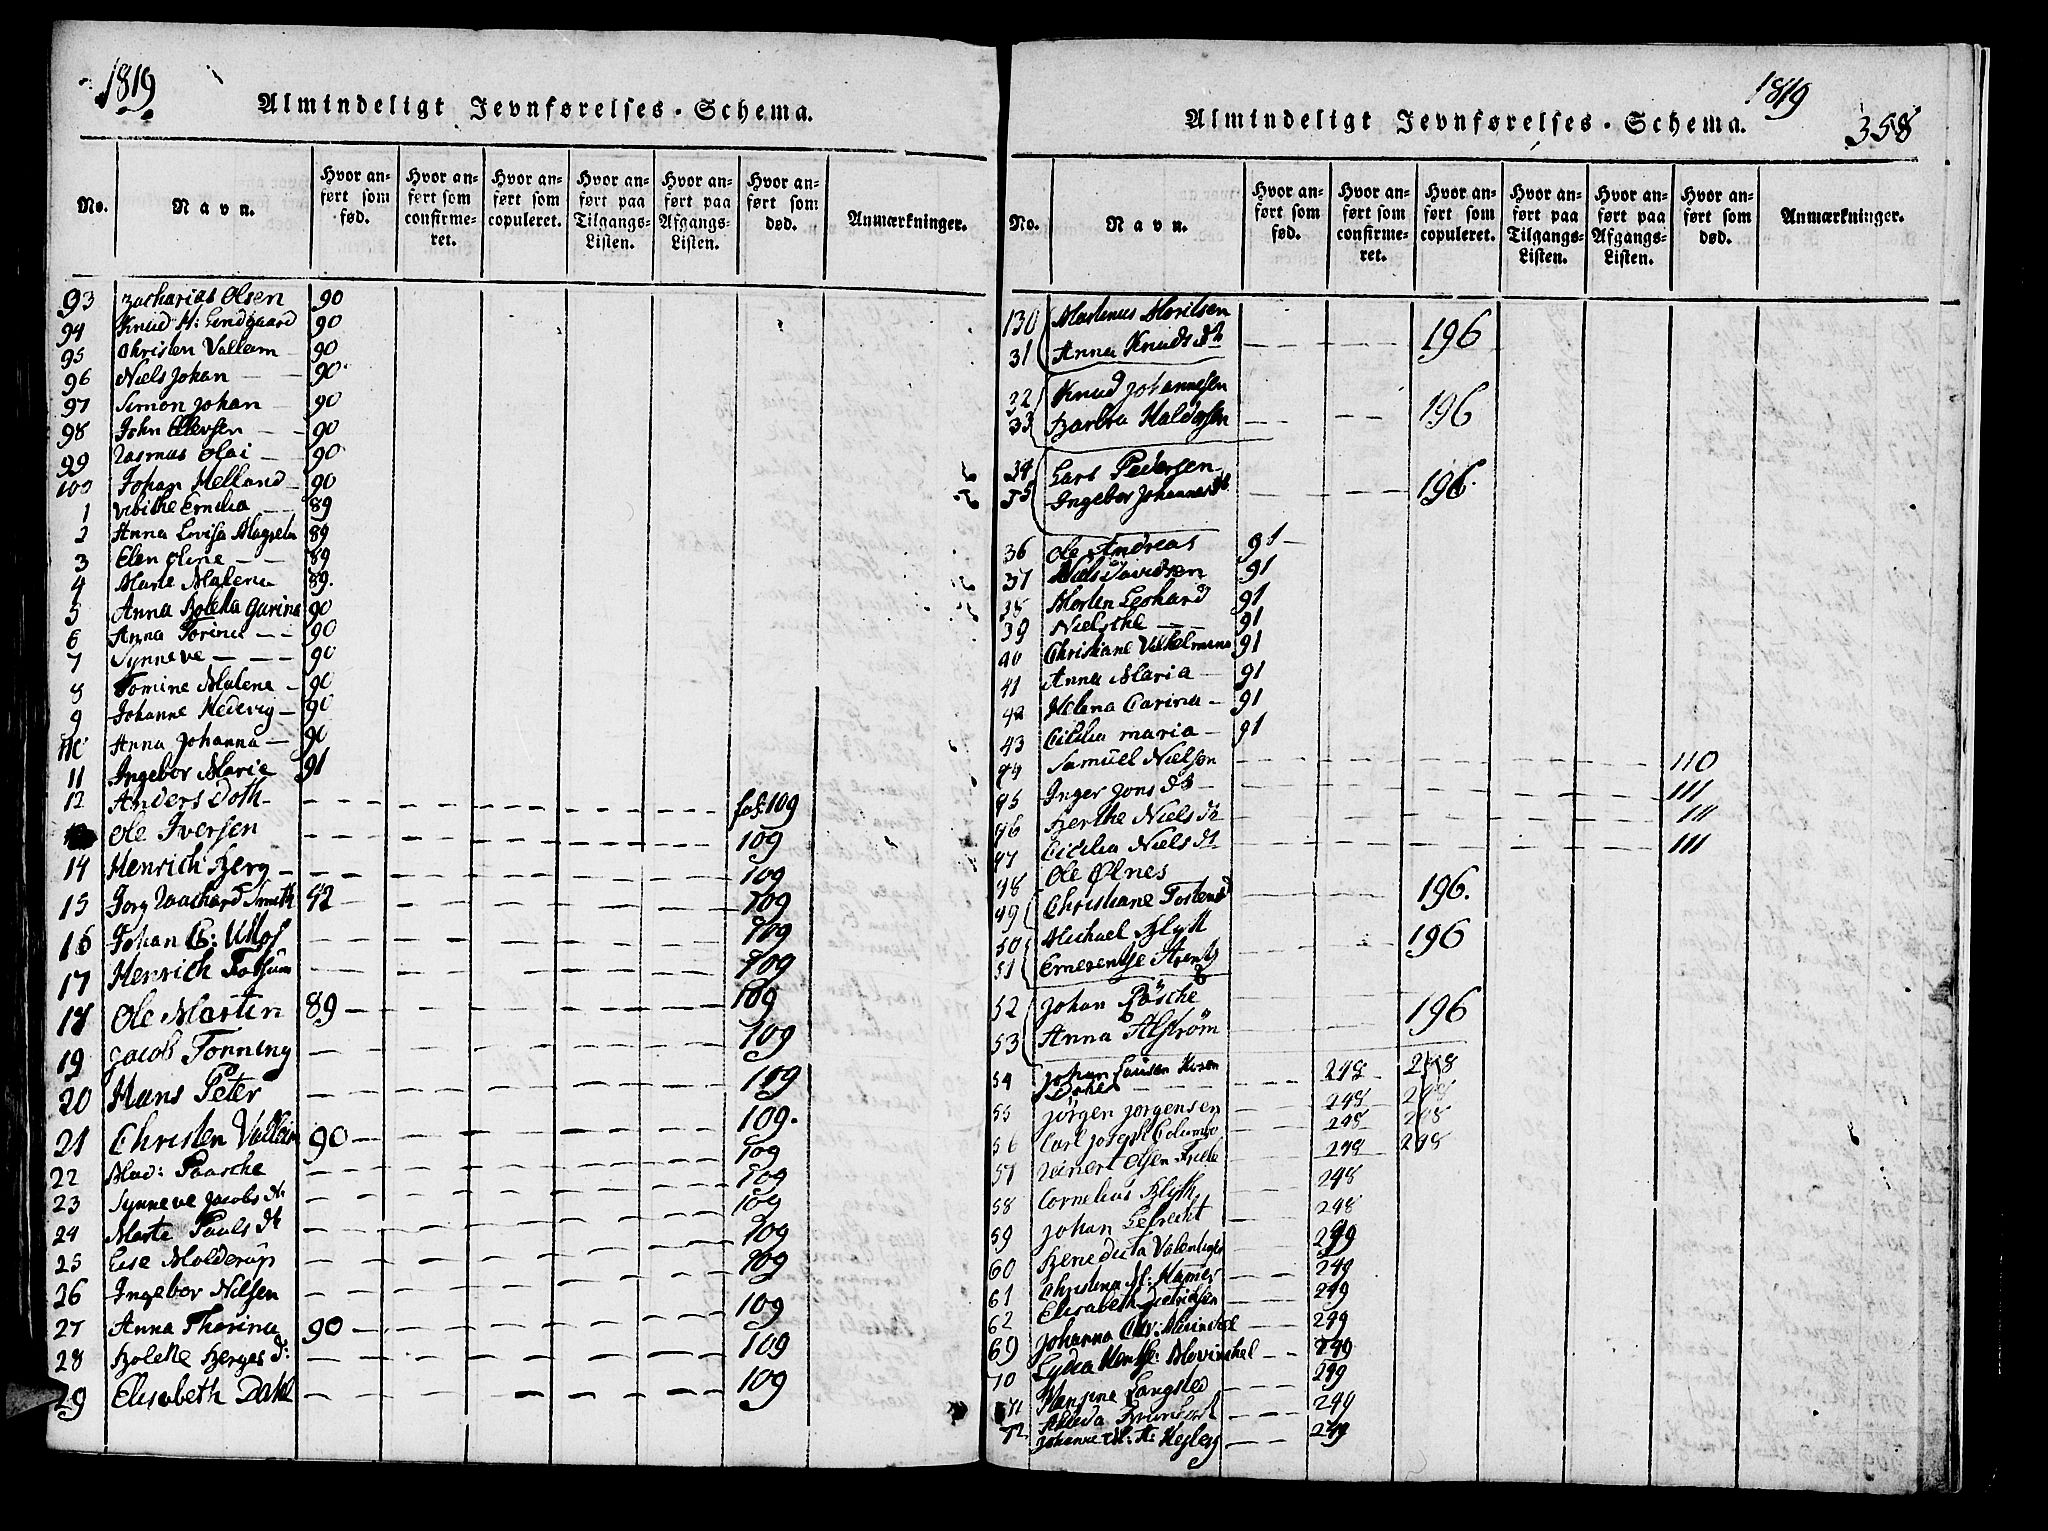 1819
Almindeligt Jevnførelses-Schema.
No. Navn. Hvor anført som fød. Hvor anført som confirmeret. Hvor anført som copuleret. Hvor anført paa Tilgangs-Listen. Hvor anført paa Afgangs-Listen. Hvor anført som død. Anmærkninger.
93 Zacharias Olsen 90
94 Knud H: Lindgaard 90
95 Christen Vallem 90
96 Niels Johan 90
97 Simon Johan 90
98 John Ellevsen 90
99 Rasmus Olai 90
100 Johan Melland 90
1 Vibiche Emilia 89
2 Anna Lovisa Magrete 89
3 Elen Oline 89
4 Marie Malena 89.
5 Anna Bolella Garina 90
6 Anna Torina 90
7 Synneve 90
8 Tomine Malene 90
9 Johanne Hedevig 90
110 Anna Johanna 90
11 Ingebor Marie 91
12 Anders Doth fol: 109
Ole Iversen 109
14 Henrich Berg 109
15 Jorg Zachard Smith 42 109
16 Johan C: 109
17 Henrich Fossum 109
18 Ole Martin 89 109
19 Jacob Tonning 109
20 Hans Peter 109
21 Christen Vallem 90 109.
22 Mad: Paasche 109
23 Synneve Jacobs dr 109
24 Marte Pouls dr 109
25 Else Molderup 109
26 Ingebor Nilsen 109
27 Anna Thorina 90 109
28 Bolette Berges d: 109
29 Elisabeth Dahl 109
1819
358
Almindeligt Jevnførelses-Schema.
No. Navn. Hvor anført som fød. Hvor anført som confirmeret. Hvor anført som copuleret. Hvor anført paa Tilgangs-Listen. Hvor anført paa Afgangs-Listen. Hvor anført som død. Anmærkninger.
130 Martenus Moritsen
31 Anna Knuds dr 196
32 Knud Johannesen
33 Barbra Haldorsen 196
34 Lars Pedersen
35 Ingebor Johannes dr 196.
36 Ole Andreas 91
37 Niels Davidsen 91
38 Morten Leohard 91
39 Nielsche 91
40 Christiane Vilhelmine 91
41 Anna Maria 91
42 Helena Carina 91
43 Cicilia maria 91
44 Samuel Nielsen 110
45 Inger Jons dr 111
46 Berthe Niels dr 111
47 Cicilia Niels dr 111
48 Ole Ølnes
49 Christiane Tostensd 196.
50 Michael Blytt 196
51 Emerentse Arentz
52 Johan Påsche 196
53 Anna Alstrøm
54 Johan 248 258
55 Jörgen Jorgensen 248 248
56 Carl Joseph Columbo 248 248
57 Reinert Olsen Friele 248 248
58 Cornelius Blyth 248
59 Johan Lebrecht 248
60 Benedicta Valentiner 249
61 Christina M: Hamer 249
62 Elisabeth Diedrichsen 249
69 Johanna 249
70 Lydia 249
71 Hansine Langsted 249
72 Johanne M: A: 249